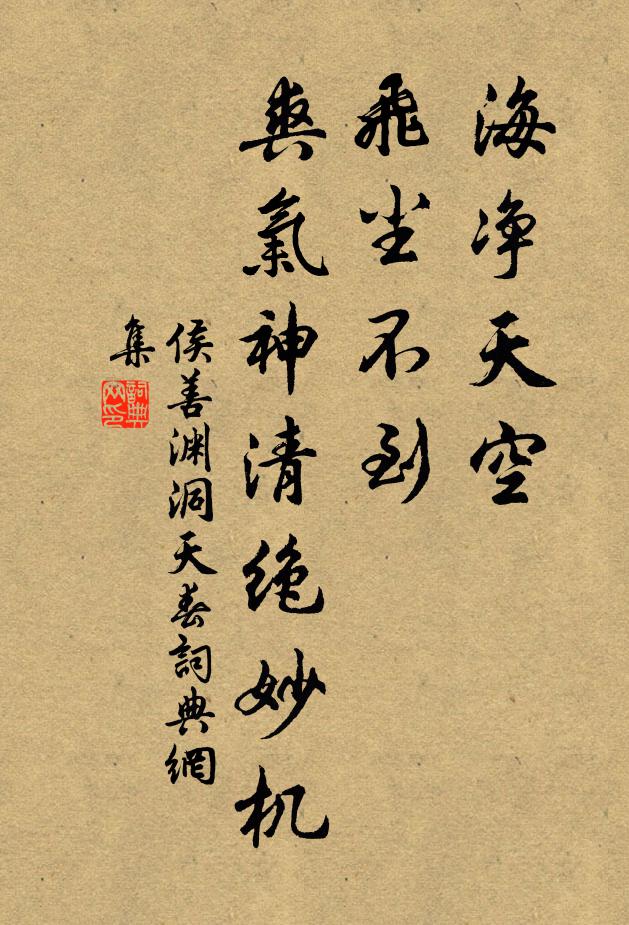 海净天空
飛尘不到
爽氣神清絶妙机
侯善渊洞天春詞典網
集
詞典
网印